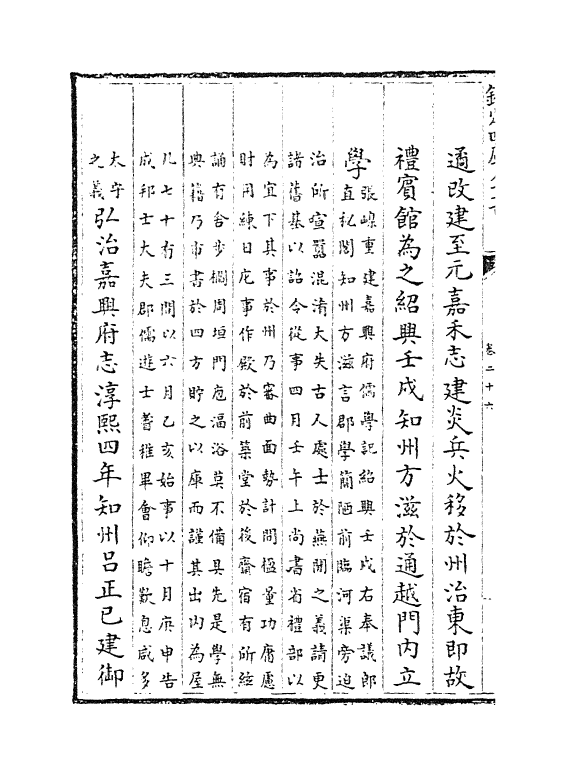 欽定四庫全書
卷二十六
遹改建至元嘉禾志建炎兵火移於州治東即故
禮賓館為之紹興壬戌知州方滋於通越門内立
學張嵲重建嘉興府儒學記紹興壬戌右奉議郎
直秘閣知州方滋言郡學簡陋前臨河渠旁迫
治所喧囂混淆大失古人處士於燕閒之義請更
諸舊基以詔令從事四月壬午上尚書省禮部以
為宜下其事於州乃審曲面勢計間楹量功庸慮
財用練日庀事作殿於前築堂於後齋宿有所絃
誦有舍步櫩周垣門庖湢浴莫不備具先是學無
典籍乃市書於四方貯之以庫而謹其出内為屋
凡七十有三間以六月乙亥始事以十月庚申告
成邦士大夫郡儒遊士耆稚畢會仰瞻歎息咸多
大守
之義弘治嘉興府志淳熙四年知州吕正已建御